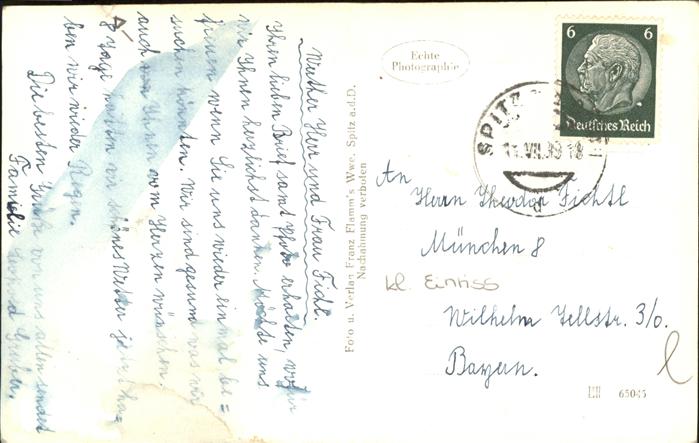 Werther Herr und Frau Fichtl.
Ihren lieben Brief samt Photo erhalten, wofür
wir Ihnen herzlichst danken. Möchte uns
freuen wenn Sie uns wieder einmal be=
suchen könnten. Wir sind gesund was wir
auch von Ihnen vom Herzen wünschen.
8 Tage hatten wir schönes Wetter jetzt ha=
ben wir wieder Regen.
Die besten Grüße von uns allen sendet
Familie Gruber.
Echte
Photographie
Foto u. Verlag Franz Flamm's Wwe, Spitz a.d.D.
Nachahmung verboten
6 6
Deutsches Reich
SPITZ
11.VII.39 18
d
An
Herrn Theodor Fichtl
München 8
kl. Einriss
Wilhelm Tellstr. 3/0.
Bayern.
65045